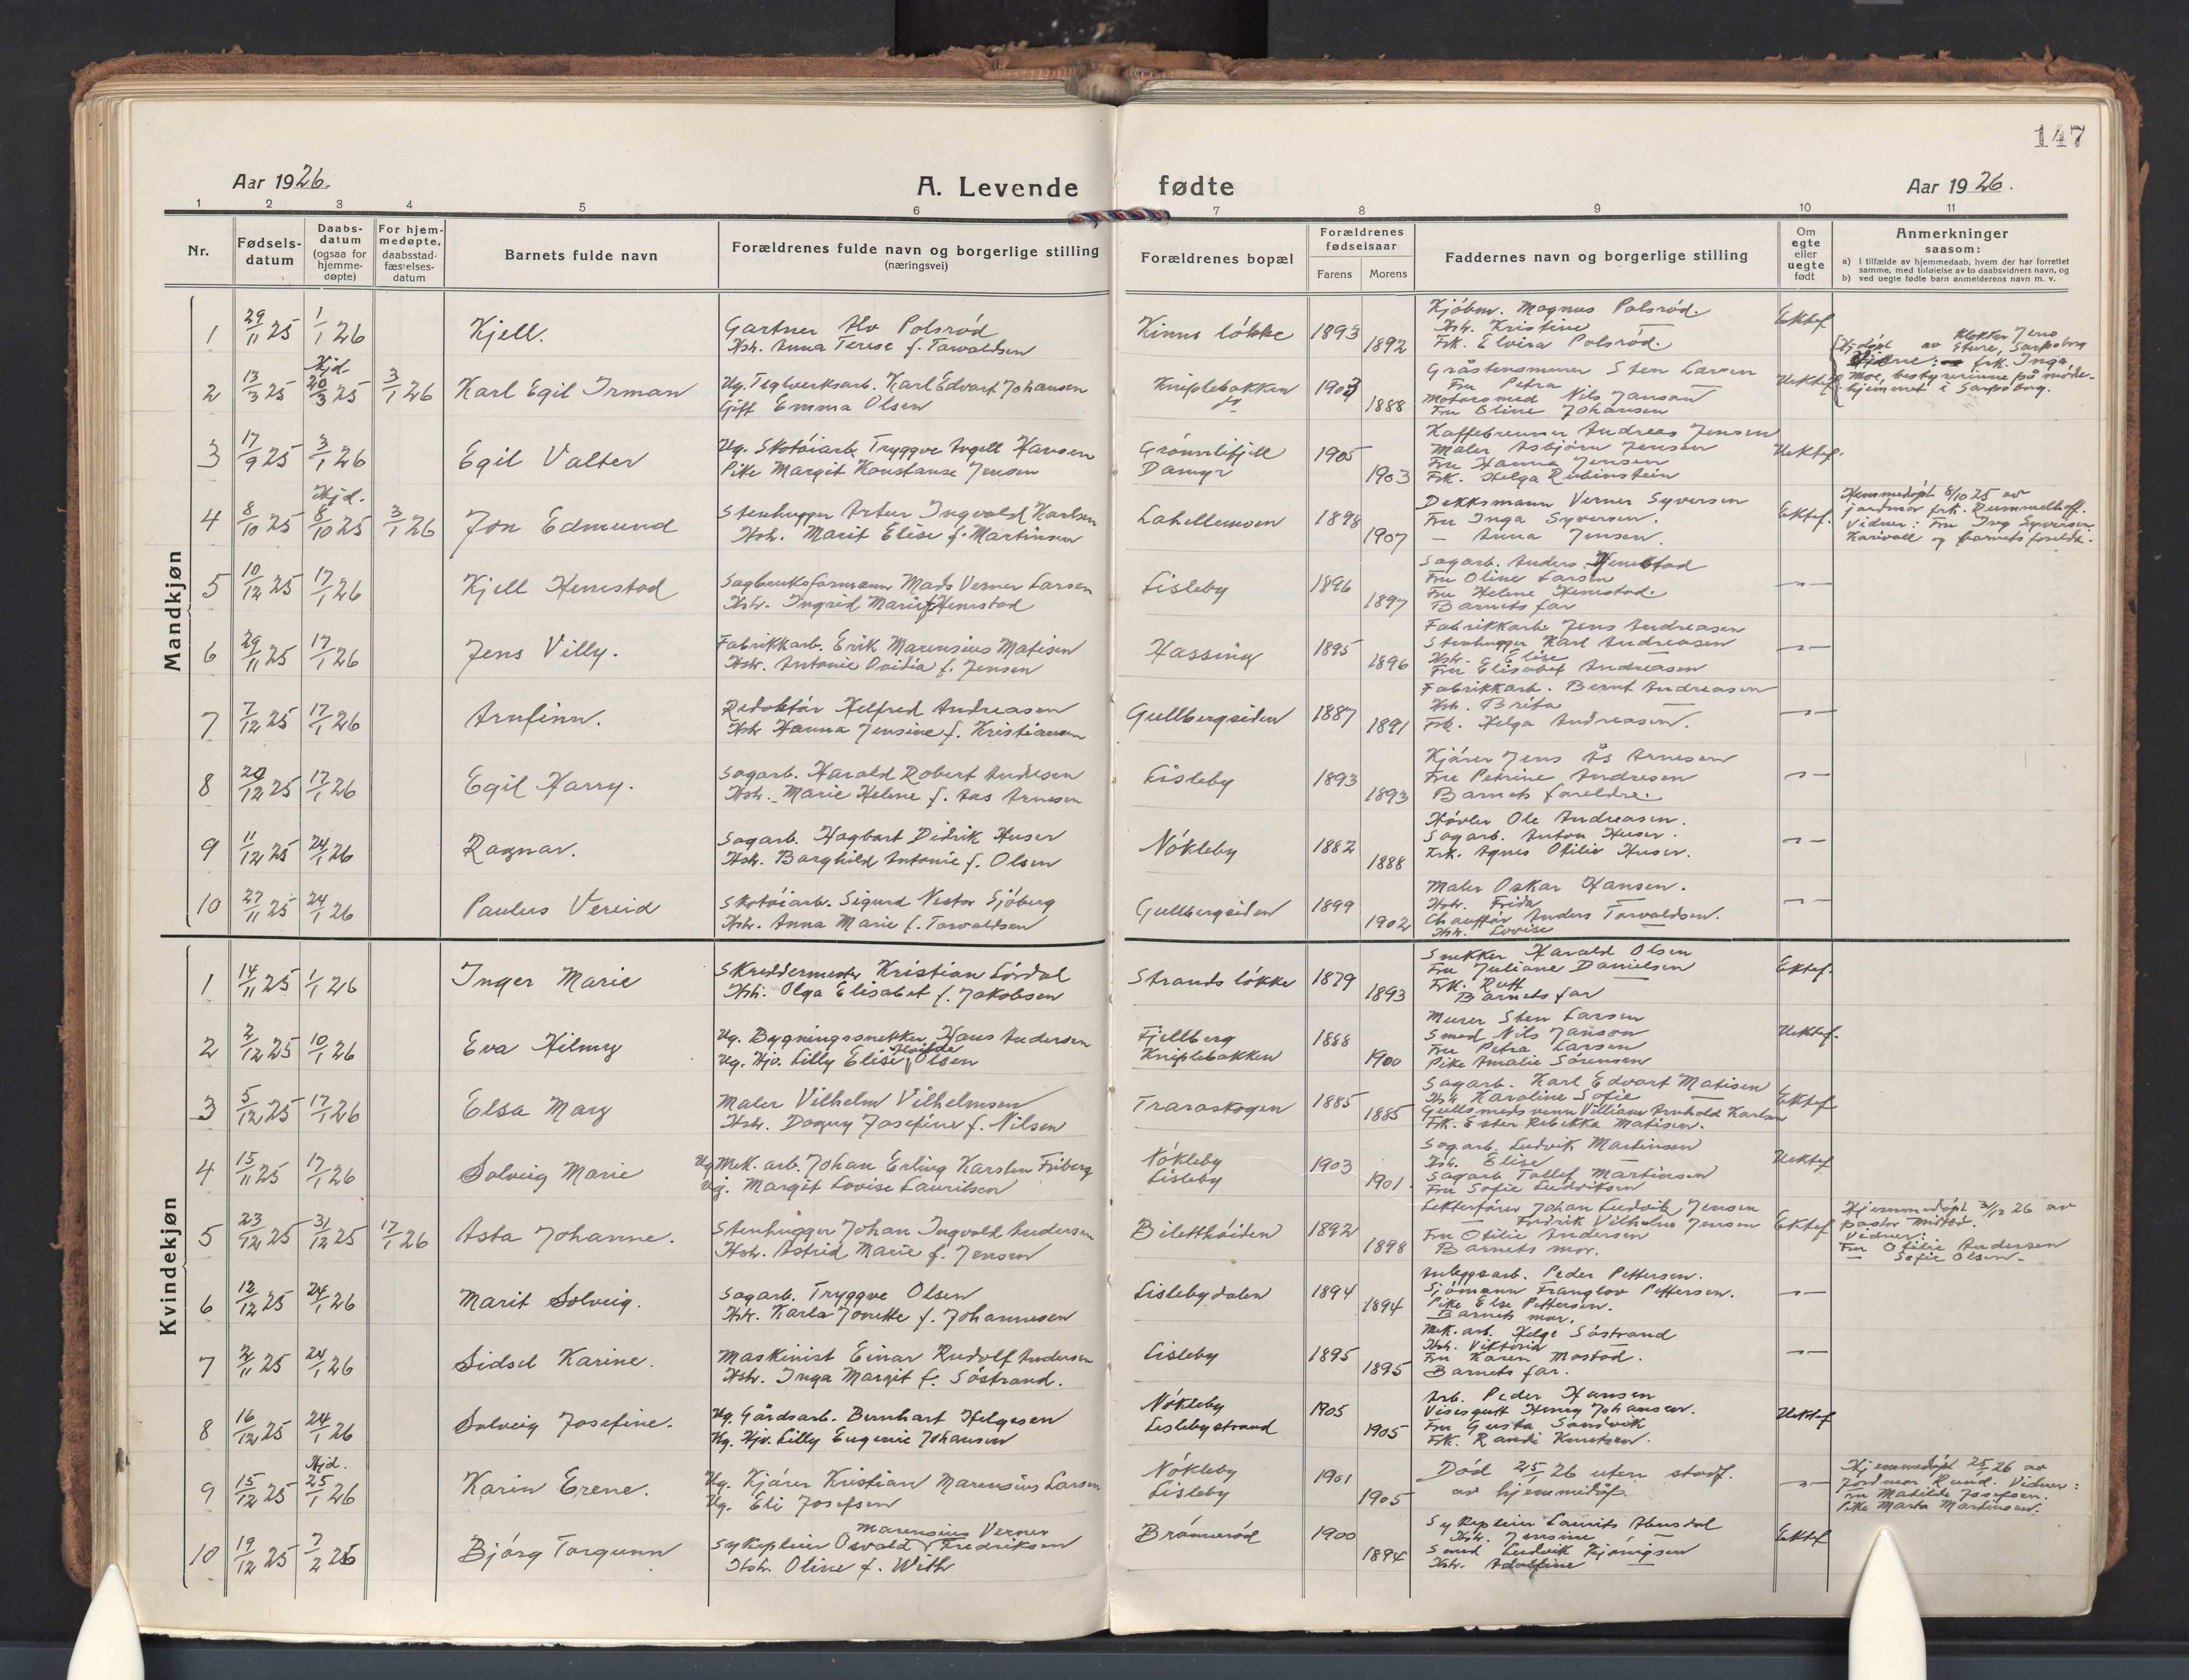 147
Aar 1926.
A. Levende fødte
Aar 1926.
1 2 3 4 5 6 7 8 9 10 11
Nr.
Fødsels-
datum
Daabs-
datum
(ogsaa for
hjemme-
døpte)
For hjem-
medøpte,
daabsstad-
fæstelses-
datum
Barnets fulde navn
Forældrenes fulde navn og borgerlige stilling
(næringsvei)
Forældrenes bopæl
Forældrenes
fødselsaar
Farens
Morens
Faddernes navn og borgerlige stilling
Om
egte
eller
uegte
født
Anmerkninger
saasom:
a) i tilfælde av hjemmedaab, hvem der har forrettet
samme, med tilføielse av to daabsvidners navn, og
b) ved uegte fødte barn anmelderens navn m. v.
Mandkjøn
1 29/11 25 1/1 26 Kjell.
Gartner Alv Polsrød
Hstr. Anna Terese f. Torvaldsen
Kinns løkke 1893 1892
Kjøbm. Magnus Polsrød.
Hstr. Kristine —
Frk. Elvira Polsrød.
Ektef
2 13/3 25 Hjd. 20/3 25 3/1 26 Karl Egil Irman
Ug. Teglverksarb. Karl Edvart Johansen
Gift Emma Olsen
Kniplebakken 1903 1888
Gråstensmurer Sten Larsen
Fru Petra —
Motorsmed Nils Janson
Fru Eline Johansen
Uektef
Hjdøpt av Klokker Jens
Sture, Sarpsborg
frk. Inga
Moe, bestyrerinne på mødre-
hjemmet i Sarpsborg.
3 17/9 25 3/1 26 Egil Valter
Ug. Skotøiarb. Tryggve Angell Hansen
Pike Margit Konstanse Jensen
Grønnlifjell
Damyr 1905 1903
Kaffebrenner Andreas Jensen
Maler Asbjørn Jensen
Fru Hanna Jensen
Frk. Helga Rubinstein
Uektef.
4 8/10 25 Hjd. 8/10 25 3/1 26 Jon Edmund
Stenhugger Artur Ingvald Karlsen
Hstr. Marit Elise f. Martinsen
Lahellemoen 1898 1907
Dekksmann Verner Syversen
Fru Inga Syversen.
— Anna Jensen.
Ektef.
Hjemmedøpt 8/10 25 av
jordmor frk. Rummelhoff.
Vidner: Fru Ing Syversen
Karivoll og barnets foreldr.
5 10/12 25 17/1 26 Kjell Hemstad
Sagbruksformann Mads Verner Larsen
Hstr. Ingrid Marie f. Hemstad
Lisleby 1896 1897
Sagarb. Anders Hemstad
Fru Oline Larsen
Fru Helene Hemstad.
Barnets far
—"—
6 29/11 25 17/1 26 Jens Villy.
Fabrikkarb. Erik Marensius Matisen
Hstr. Antonie Ovidia f. Jensen
Hassing 1895 1896
Fabrikkarb. Jens Andreasen
Stenhugger Karl Andreasen
Hstr. Elise —
Fru Elisabet Andreasen
—"—
7 7/12 25 17/1 26 Arnfinn.
Redaktør Helfred Andreasen
Hstr Hanna Jensine f. Kristiansen
Gullbergsiden 1887 1891
Fabrikkarb. Bernt Andreasen
Hstr. Brita —
Frk. Helga Andreasen.
—"—
8 20/12 25 17/1 26 Egil Harry.
Sagarb. Harald Robert Andresen
Hstr. Marie Helene f. Aas Arnesen
Lisleby 1893 1893
Kjører Jens Ås Arnesen
Fru Petrine Andresen
Barnets foreldre.
—"—
9 11/12 25 24/1 26 Ragnar.
Sagarb. Hagbart Didrik Huser
Hstr. Borghild Antonie f. Olsen
Nøkleby 1882 1888
Høvler Ole Andreasen.
Sagarb. Anton Huser.
Frk. Agnes Otilie Huser.
—"—
10 27/11 25 24/1 26 Paulus Vereid
Skotøiarb. Sigurd Nestor Sjøberg
Hstr. Anna Marie f. Torvaldsen
Gullbergsiden 1899 1902
Maler Oskar Hansen.
Hstr. Frida —
Chauffør Anders Torvaldsen.
Hstr. Lovise —
—"—
Kvindekjøn
1 14/11 25 1/1 26 Inger Marie
Skreddermester Kristian Lørdal
Hstr. Olga Elisabet f. Jakobsen
Strands løkke 1879 1893
Snekker Harald Olsen
Fru Juliane Danielsen
Frk. Rutt —
Barnets far
Ektef.
2 2/12 25 10/1 26 Eva Hilmy
Ug. Bygningssnekker Hans Andersen
Ug. Hjv. Lilly Elise Olsen
Fjellberg
Kniplebakken 1888 1900
Murer Sten Larsen
Smed Nils Janson
Fru Petra Larsen
Pike Amalie Sørensen
Uektef.
3 5/12 25 17/1 26 Elsa Mary
Maler Vilhelm Vilhelmsen
Hstr. Dagny Josefine f. Nilsen
Traraskogen 1885 1885
Sagarb. Karl Edvart Matisen
Hstr Karoline Sofie —
Gullsmedsvenn Villiam Arnhold Karlsen
Frk. Ester Rebekka Matisen.
Ektef
4 15/11 25 17/1 26 Solveig Marie
Ug Mek. arb. Johan Erling Karsten Friberg
Ug. Margit Lovise Lauritsen
Nøkleby
Lisleby 1903 1901
Sagarb. Ludvik Martinsen
Hstr. Elise —
Sagarb Tollef Martinsen
Fru Sofie Ludviksen
Uektef
5 23/12 25 31/12 25 17/1 26 Asta Johanne.
Stenhugger Johan Ingvald Andersen
Hstr. Astrid Marie f. Jensen
Biletthöiden 1892 1898
Lekterfører Johan Ludvik Jensen
— Fredrik Vilhelm Jensen
Fru Otilie Andersen
Barnets mor.
Ektef
Hjemmedøpt 31/12 26 av
pastor Midbød.
Vidner:
Fru Otilie Andersen
— Sofie Olsen.
6 12/12 25 24/1 26 Marit Solveig.
Sagarb. Tryggve Olsen
Hstr. Karla Jonette f. Johannesen
Lislebydalen 1894 1894
Anleggsarb. Peder Pettersen.
Sjømann Franglov Pettersen.
Pike Else Pettersen.
Barnets mor.
—"—
7 2/11 25 24/1 26 Sidsel Karine.
Maskinist Einar Rudolf Andersen
Hstr. Inga Margit f. Søstrand.
Lisleby 1895 1895
Mek. arb. Helge Søstrand
Hstr. Viktoria —
Fru Karen Mostad.
Barnets far.
—"—
8 16/12 25 24/1 26 Solveig Josefine.
Ug. Gårdsarb. Bernhart Helgesen
Ug. Hjv. Lilly Eugenie Johansen
Nøkleby
Lislebystrand 1905 1905
Arb. Peder Hansen
Visergutt Henry Johansen.
Fru Gusta Sandvik
Frk. Randi Knutsen.
Uektef
9 15/12 25 Hjd. 25/1 26 Karin Erene.
Ug. Kjører Kristian Marensius Larsen
Ug. Eli Josefsen
Nøkleby
Lisleby 1901 1905
Død 25/1 26 uten stadf.
av hjemmedåp.
—"—
Hjemmedøpt 25/1 26 av
Jordmor Rund. Vidner:
Fru Matilde Josefsen.
Pike Marta Martinsen.
10 19/12 25 7/2 26 Bjørg Torgunn
Marensius Verner
Sykepleier Osvald Fredriksen
Hstr. Oline f. With
Brønnerød 1900 1894
Sykepleier Laurits Alensdal
Hstr. Jensine —
Smed Ludvik Kjønigsen
Hstr. Adolfine —
Ektef